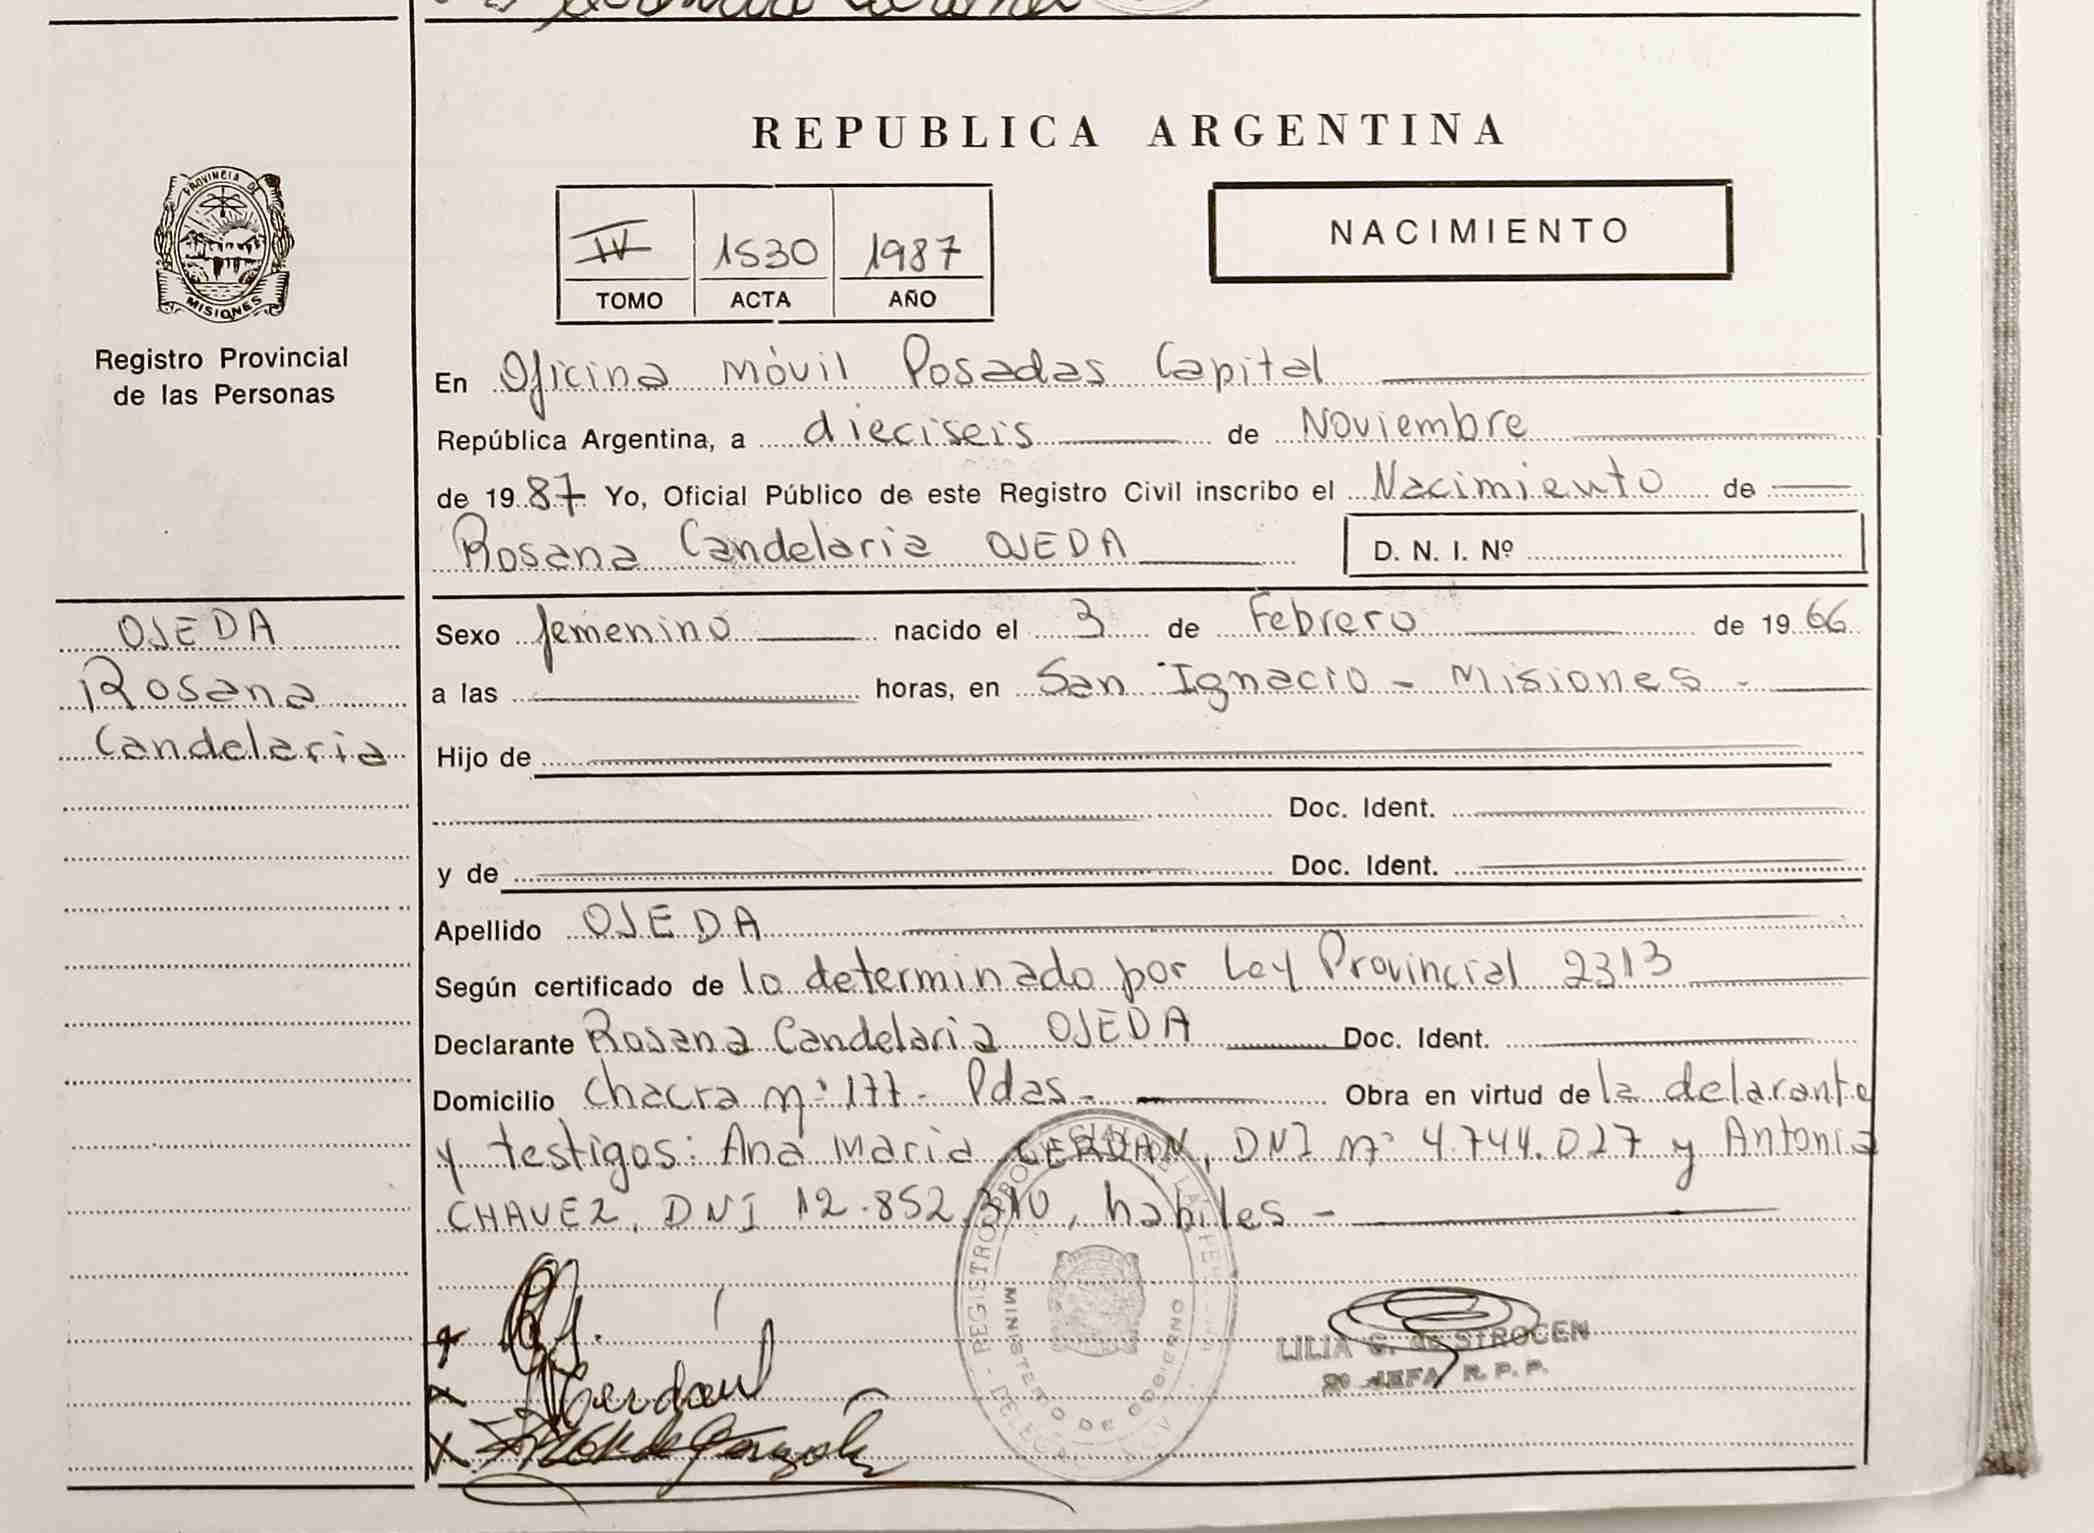 REPUBLICA ARGENTINA
PROVINCIA DE
MISIONES
Registro Provincial
de las Personas
IV 1530 1987
TOMO ACTA AÑO
NACIMIENTO
En Oficina Móvil Posadas Capital
República Argentina, a dieciseis de Noviembre
de 1987 Yo, Oficial Público de este Registro Civil inscribo el Nacimiento de
Rosana Candelaria OJEDA D. N. I. Nº
OJEDA
Rosana
Candelaria
Sexo femenino nacido el 3 de Febrero de 1966
a las horas, en San Ignacio - Misiones -
Hijo de
Doc. Ident.
y de Doc. Ident.
Apellido OJEDA
Según certificado de lo determinado por Ley Provincial 2313
Declarante Rosana Candelaria OJEDA Doc. Ident.
Domicilio Chacra nº 177 - Pdas - Obra en virtud de la delarante
y testigos: Ana Maria CERDAN, DNI nº 4.744.027 y Antonia
CHAVEZ, DNI 12.852.310, habiles -
MINISTERIO DE GOBIERNO
LILIA G. de STROCEN
2º JEFA R. P. P.
Cerdan